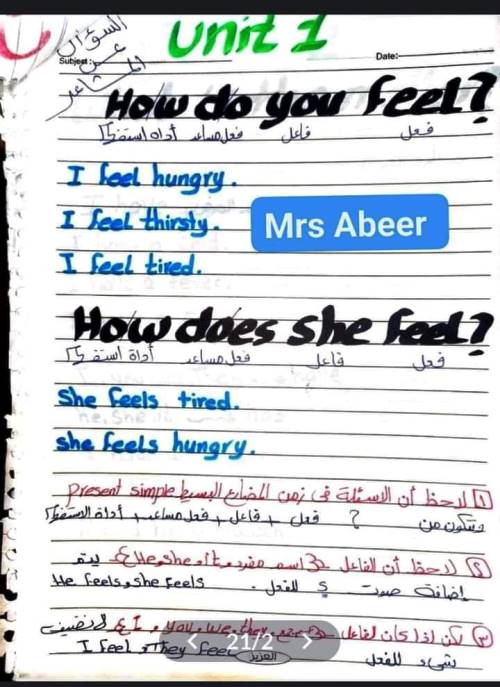 Unit 1
السؤال
عن
المشاعر
Subject:
Date:
How do you feel?
أداة استفهام فعل مساعد فاعل فعل
I feel hungry.
I feel thirsty.
Mrs Abeer
I feel tired.
How does she feel?
أداة استفهام فعل مساعد فاعل فعل
She feels tired.
she feels hungry.
١ لاحظ أن الاسئلة في زمن المضارع البسيط present simple
وتتكون من ? فعل + فاعل + فعل مساعد + أداة استفهام
٢ لاحظ أن الفاعل اسم مفرد He, she, it يتم
إضافة صوت s للفعل. He feels, she feels
٣ لكن إذا كان الفاعل I, you, we, they لانضيف
21/2
شيء للفعل I feel, They feel
المزيد